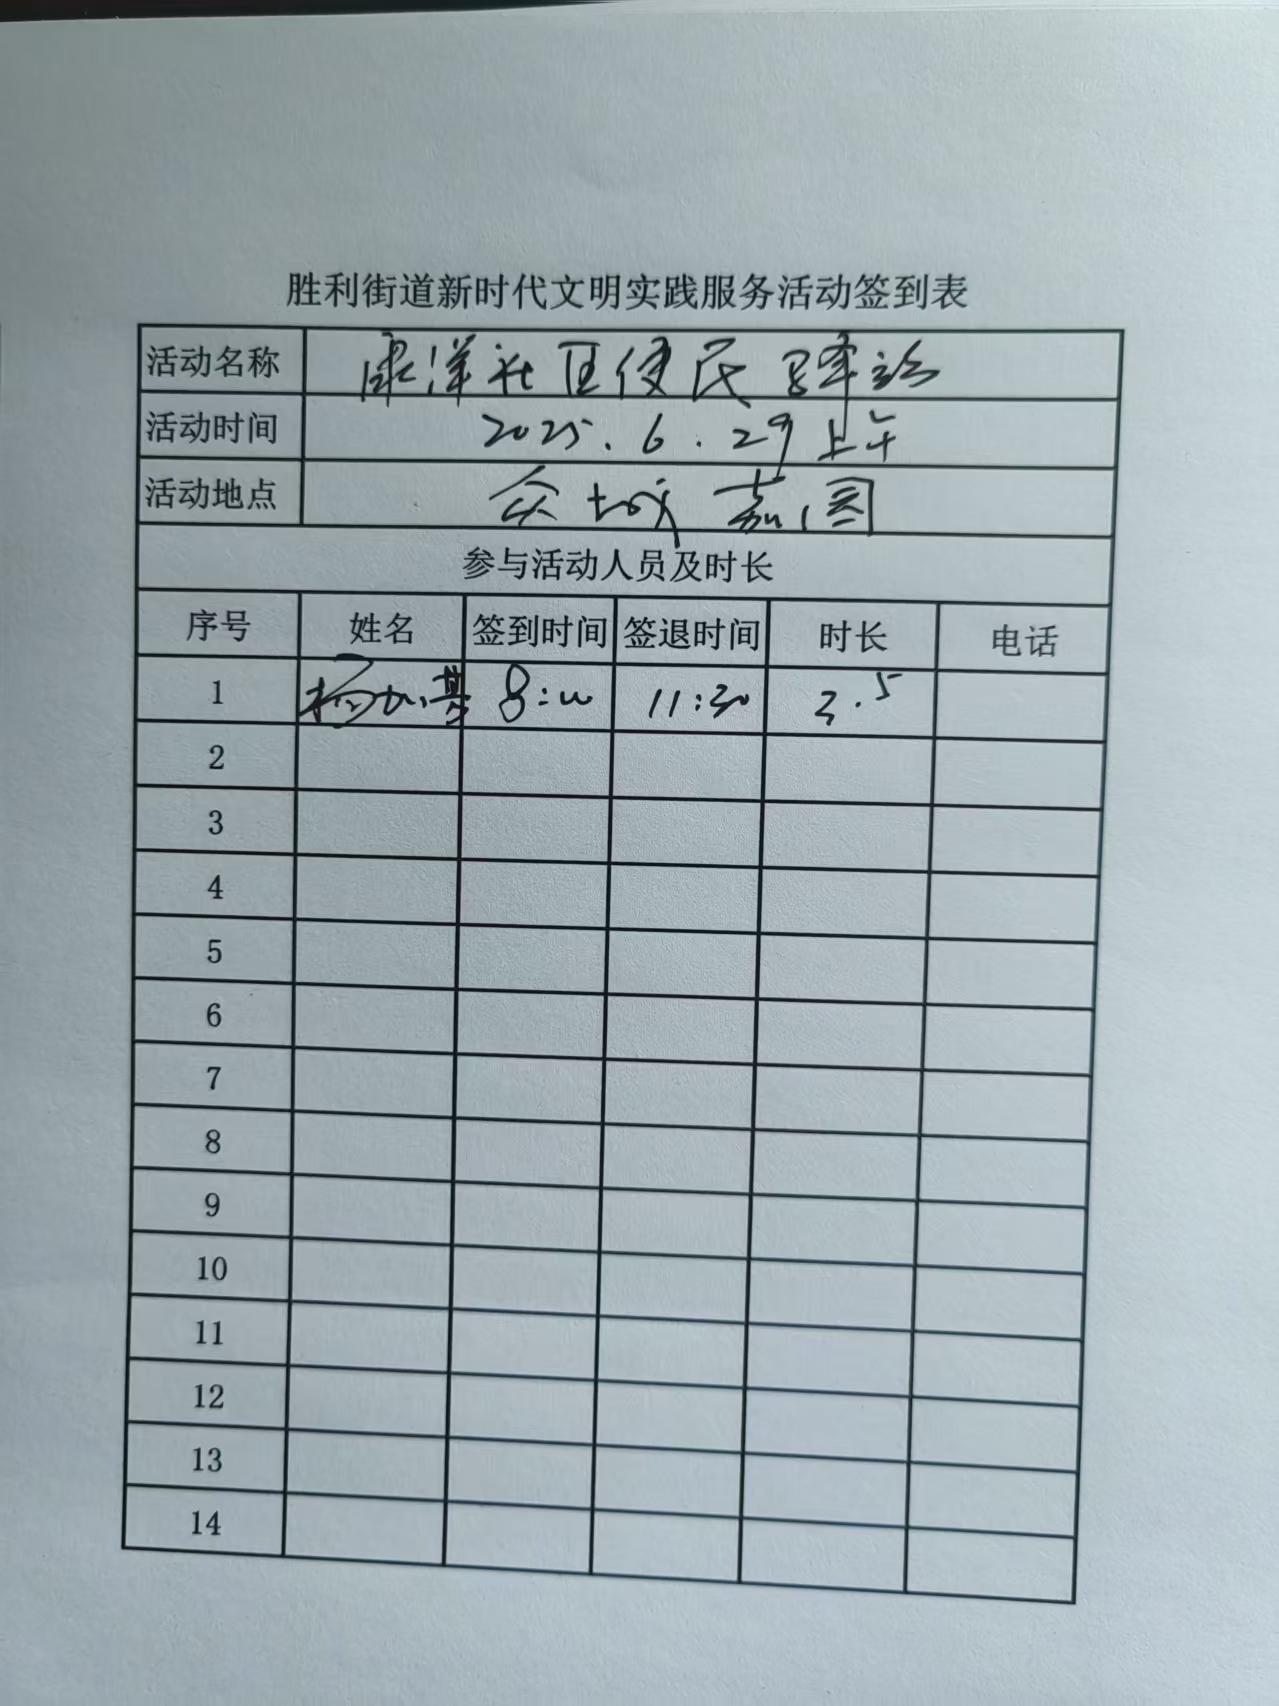 胜利街道新时代文明实践服务活动签到表
活动名称 康洋社区便民驿站
活动时间 2025.6.29上午
活动地点 众城嘉图
参与活动人员及时长
序号 姓名 签到时间 签退时间 时长 电话
1 杨 8:00 11:30 3.5
2
3
4
5
6
7
8
9
10
11
12
13
14